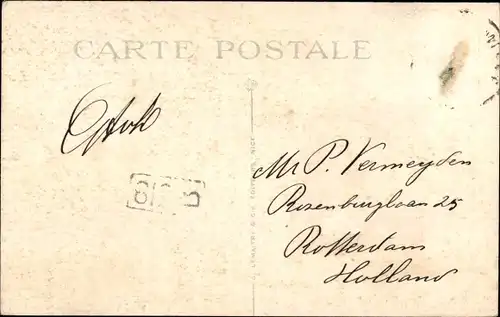 CARTE POSTALE
Mr P. Vermeyden
Rozenburglaan 25
Rotterdam
Holland